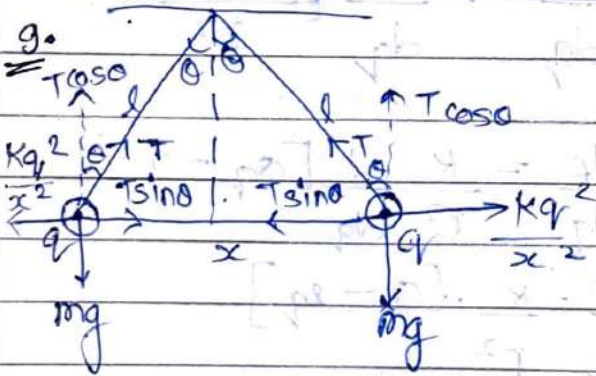 9.
θ θ
Tcosθ l l Tcosθ
Kq²/x² θ T T θ
Tsinθ Tsinθ Kq²/x²
q x q
mg mg